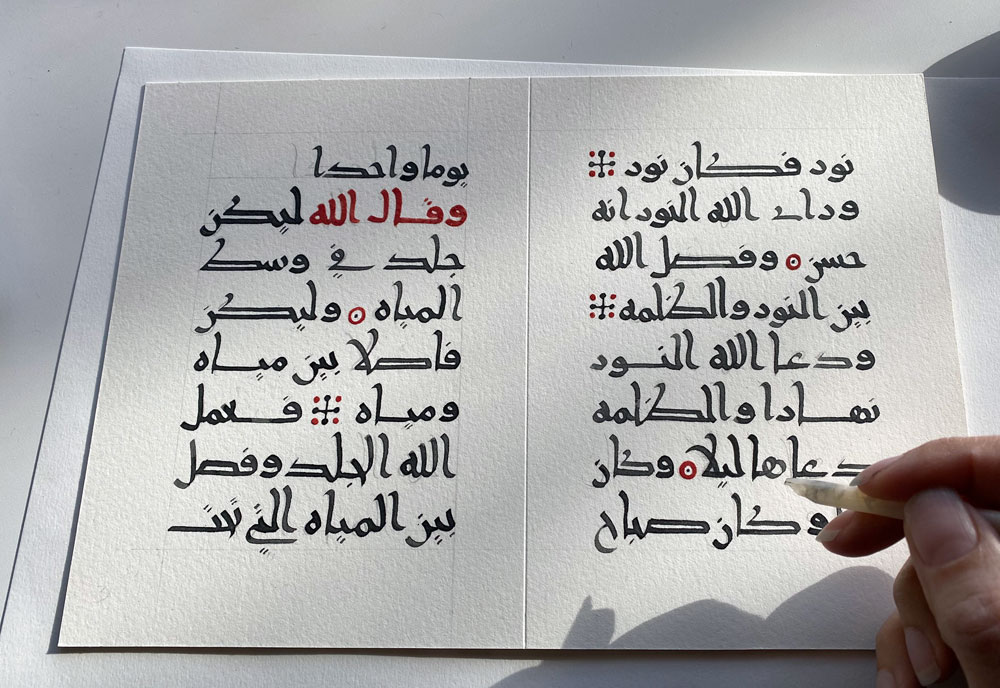 نور فكان نور
وراى الله النور انه
حسن وفصل الله
بين النور والظلمه
ودعا الله النور
نهارا والظلمه
دعاها ليلا وكان
وكان صباح
يوما واحدا
وقال الله ليكن
جلد في وسط
المياه وليكن
فاصلا بين مياه
ومياه فعمل
الله الجلد وفصل
بين المياه التي تحت